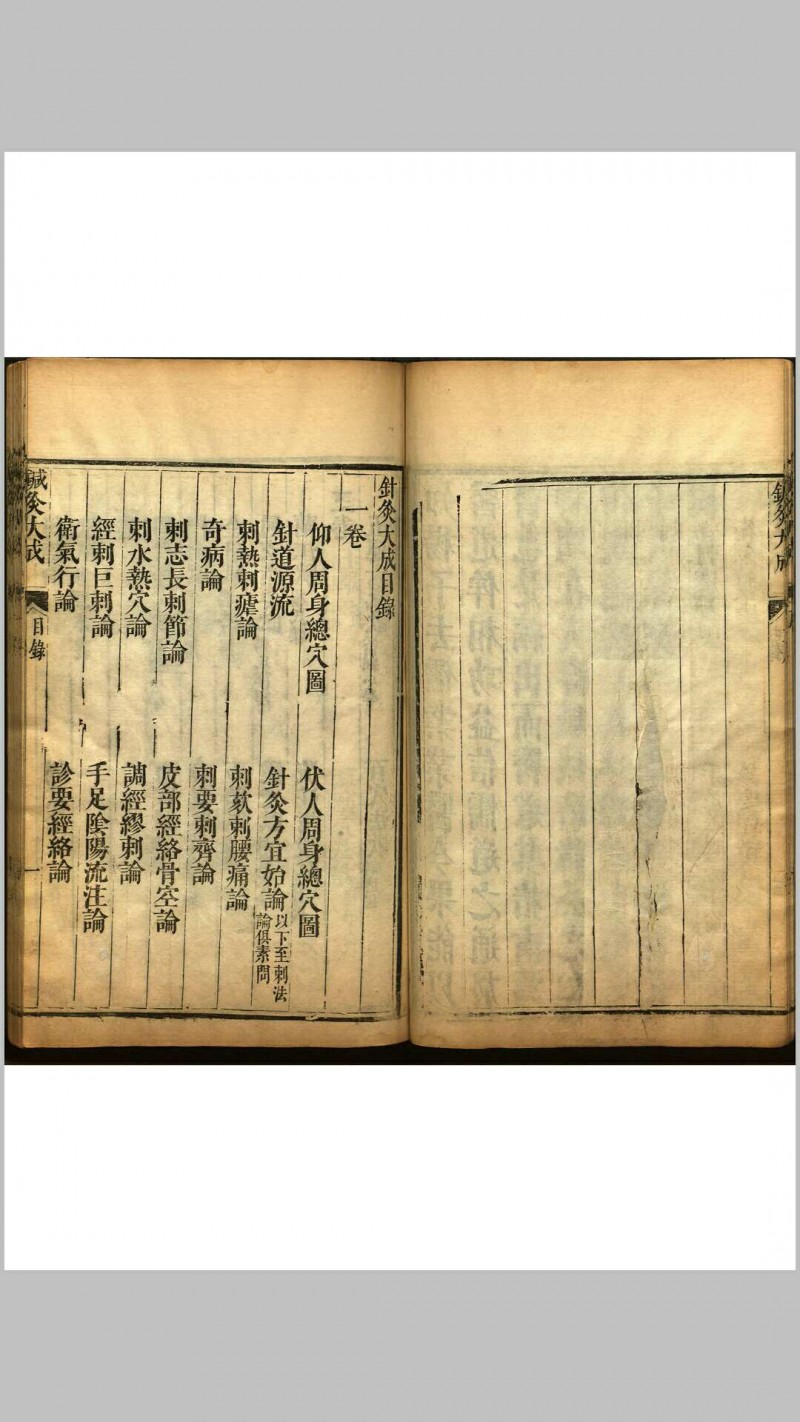 鍼灸大成
針灸大成目錄
一卷
仰人周身總穴圖
伏人周身總穴圖
針道源流
針灸方宜始論
以下至刺法
論俱素問
刺熱刺瘧論
刺欬刺腰痛論
奇病論
刺要刺齊論
刺志長刺節論
皮部經絡骨空論
刺水熱穴論
調經繆刺論
經刺巨刺論
手足陰陽流注論
衛氣行論
診要經絡論
鍼灸大成
目錄
一